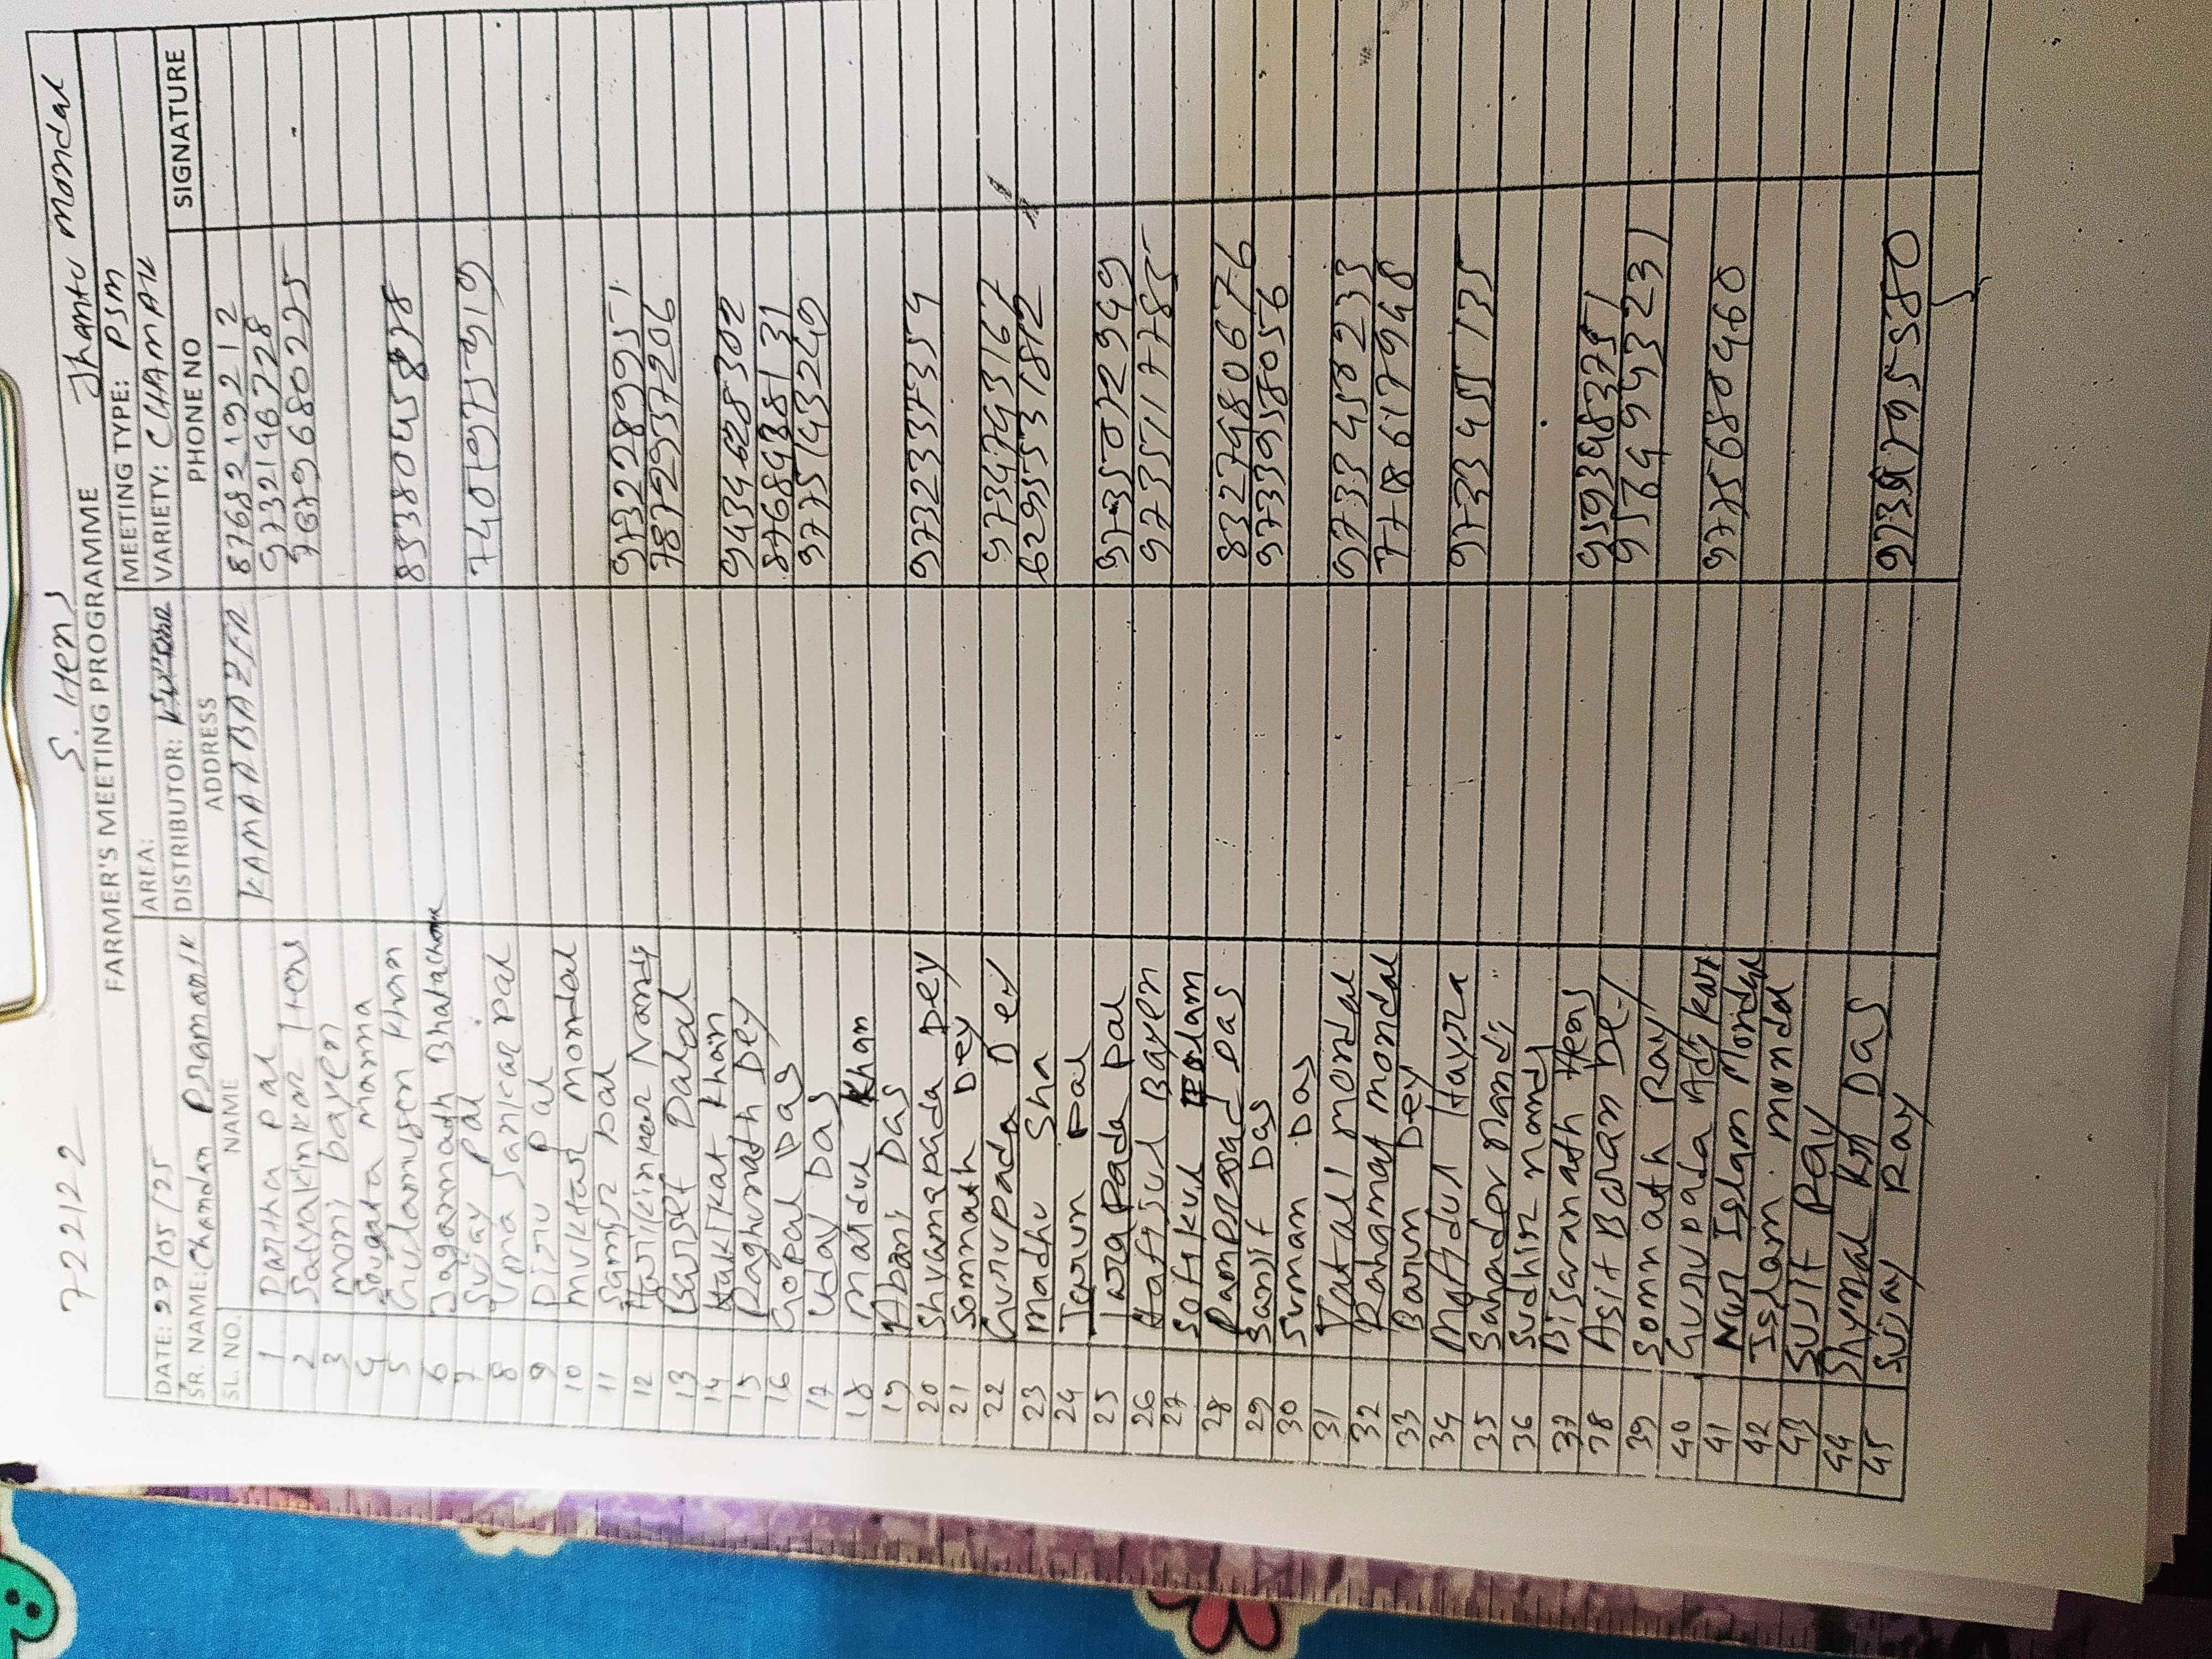 722122 S. Hens Jhantu Mondal
FARMER'S MEETING PROGRAMME
DATE: 27/05/25 AREA: MEETING TYPE: PSM
SR. NAME: Chandan Pramanik DISTRIBUTOR: VARIETY: CHAMAK
SL. NO. NAME ADDRESS PHONE NO SIGNATURE
1 Partha Pal KAMARBAZAR 8768219212
2 Satyakinkar Hens 9732146728
3 moni bayen 7679680225
4 Sougata manna
5 Gulamusen Khan
6 Jagannath Bhatacharya 8538045878
7 Sujay Pal
8 Uma Sankar pal 7401975919
9 Dinu pal
10 muktar mondal
11 Samir pal
12 Harikinkar Nandi 9732289951
13 Barset Dalal 7872937206
14 Hakikat Khan
15 Raghunath Dey 9434628302
16 Gopal Das 8768438131
17 Uday Das 9775143249
18 Maidul Khan
19 Abani Das
20 Shyamapada Dey 9732337354
21 Somnath Dey
22 Gurupada Dey 9734743167
23 Madhu Sha 6295531812
24 Tarun Pal
25 Tarapada Pal 9735072949
26 Hafijul Bayen 9735717785
27 Sofikul
28 Ramprosad Das 8327480676
29 Sanjit Das 9733958056
30 Suman Das
31 Yakali mondal 9733450233
32 Rahamat mondal 7718617948
33 Barun Dey
34 Mafidul Hayra 9733455135
35 Sahander Nandi
36 Sudhir nandi
37 Bisranath Hens 9593983751
38 Asit Baran Dey 9564943231
39 Somnath Ray
40 Gurupada Adikari 9775680460
41 Nur Islam Mondal
42 Islam mondal
43 Surit Ray
44 Shymal Km Das
45 Sujay Ray